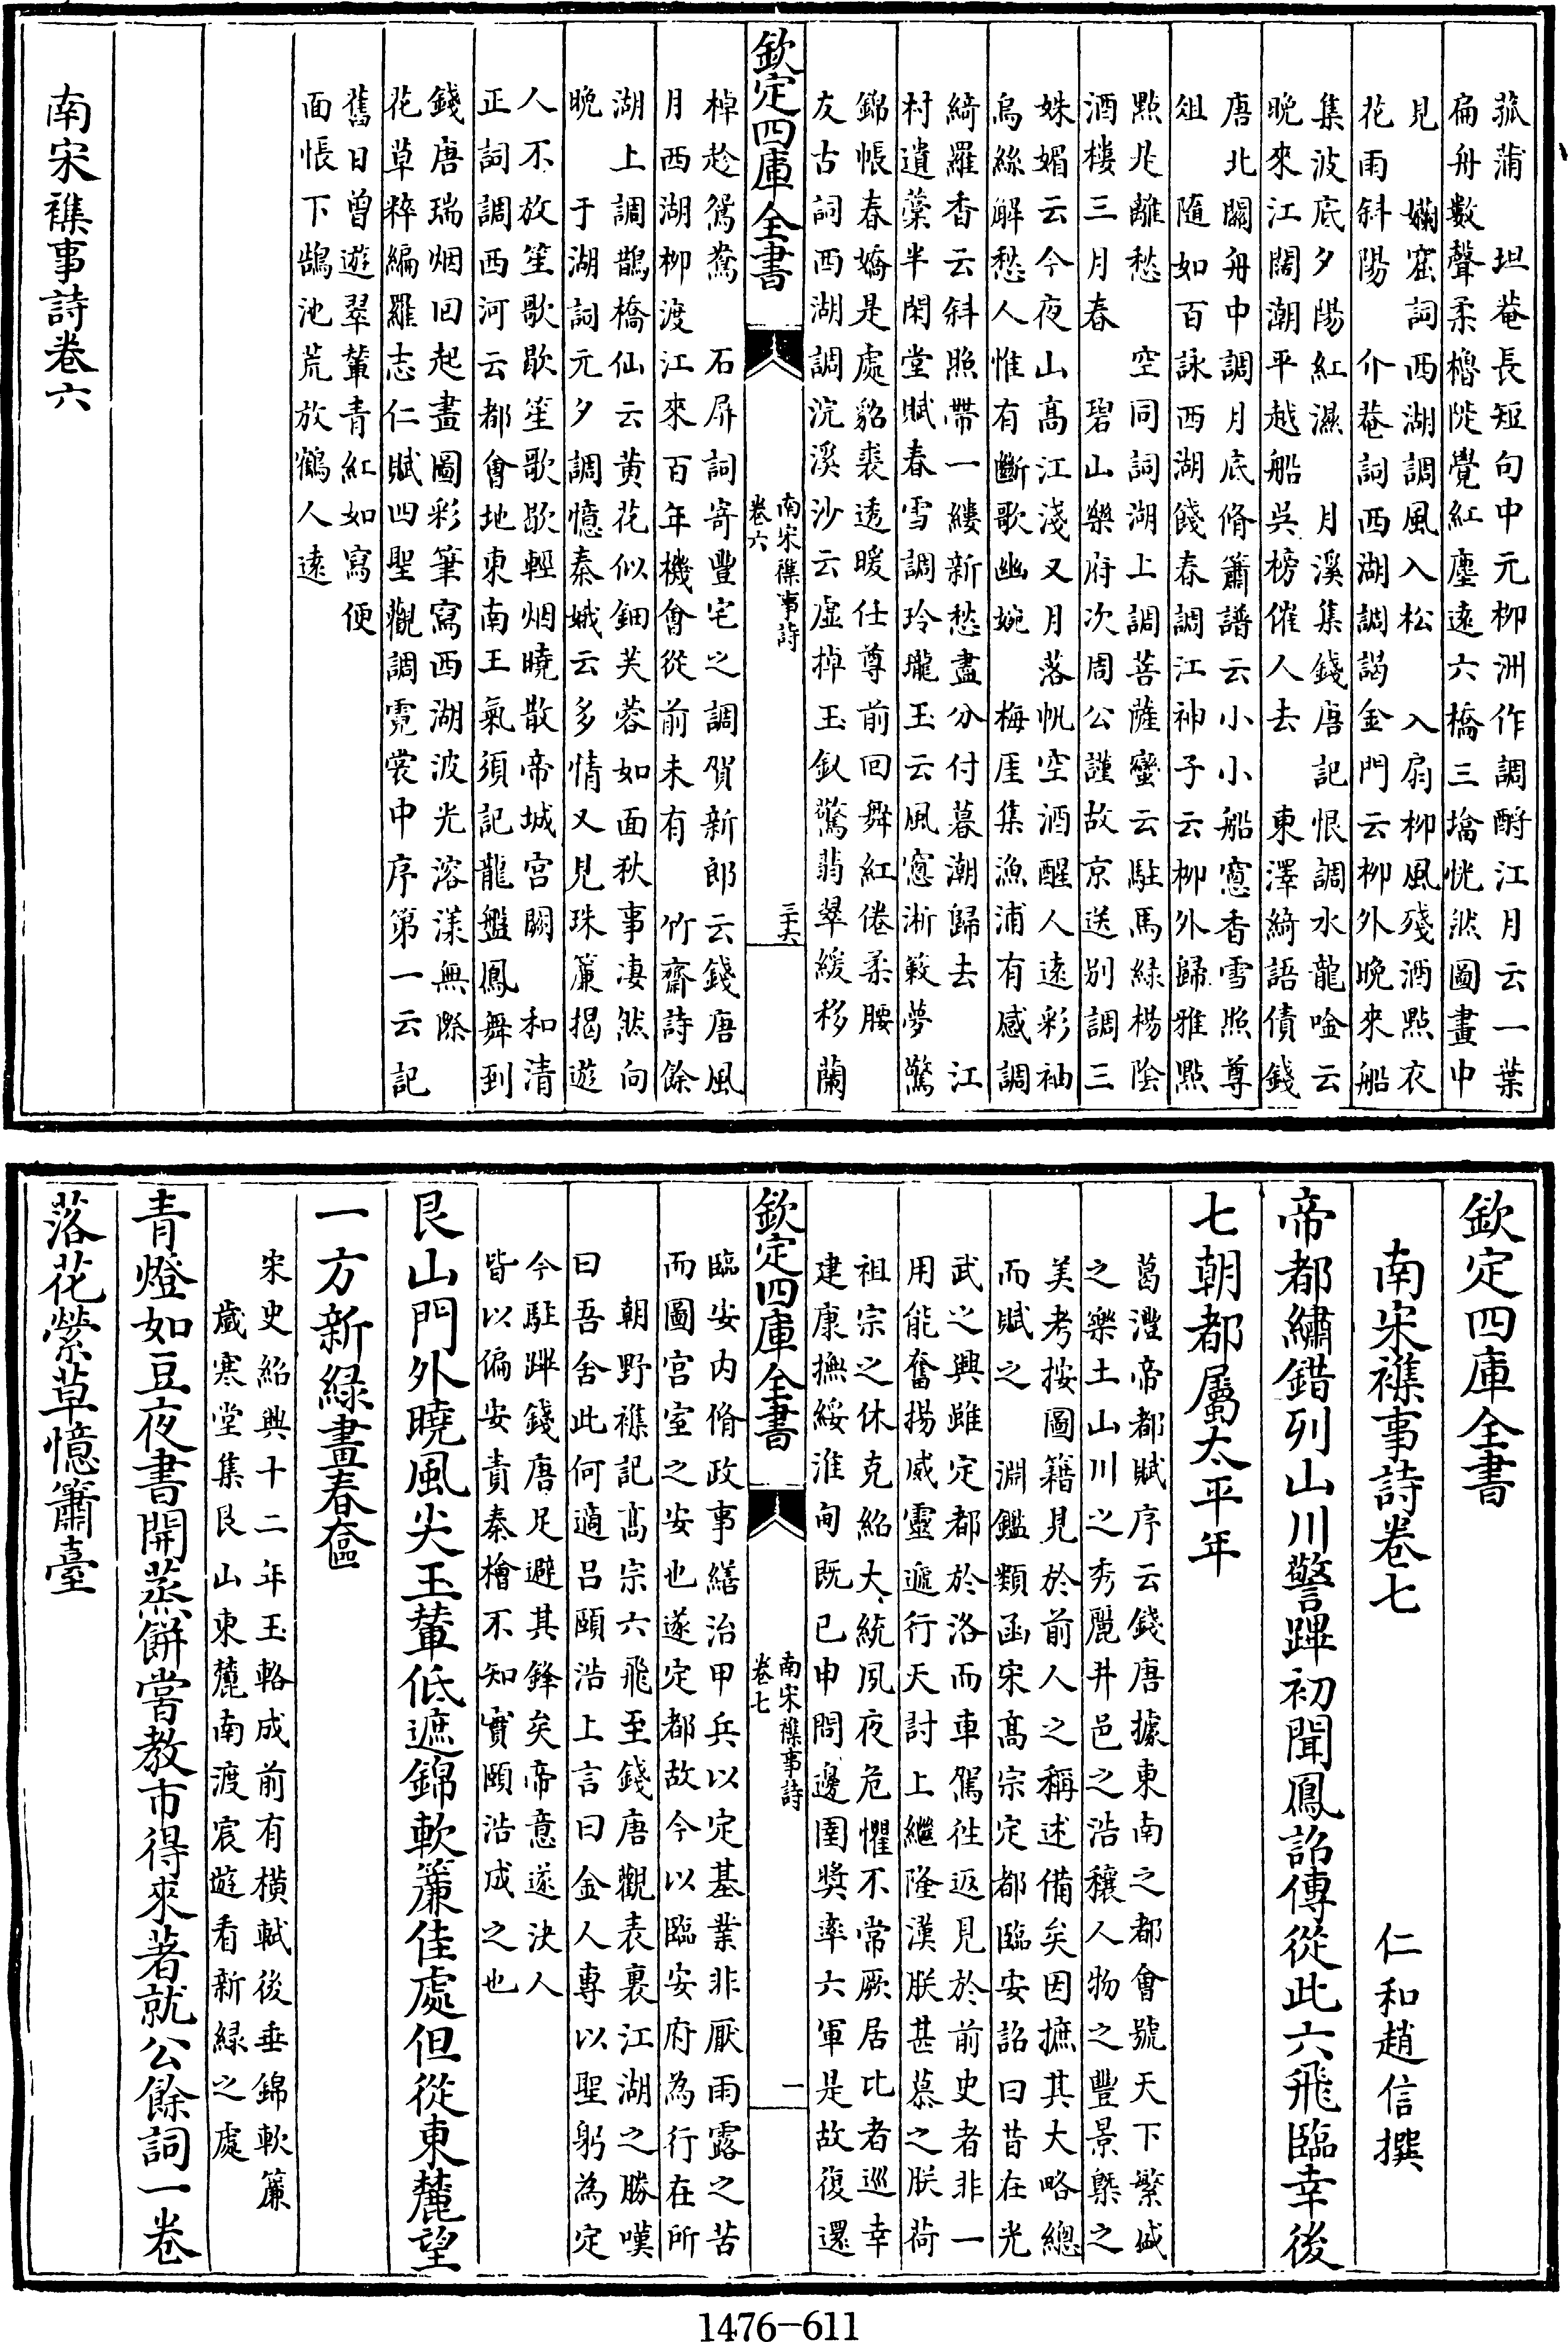 菰蒲　坦菴長短句中元柳洲作調酹江月云一葉
扁舟數聲柔櫓陡覺紅塵遠六橋三塔恍然圖畫中
見　嬾窟詞西湖調風入松　入扇柳風殘酒點衣
花雨斜陽　介菴詞西湖調謁金門云柳外晚來船
集波底夕陽紅濕　月溪集錢唐記恨調水龍吟云
晚來江闊潮平越船吳榜催人去　東澤綺語債錢
唐北關舟中調月底脩簫譜云小小船窓香雪照尊
俎　隨如百詠西湖餞春調江神子云柳外歸雅點
點兆離愁　空同詞湖上調菩薩蠻云駐馬綠楊陰
酒樓三月春　碧山樂府次周公謹故京送别調三
姝媚云今夜山高江淺又月落帆空酒醒人遠彩袖
烏絲解愁人惟有斷歌幽婉　梅厓集漁浦有感調
綺羅香云斜照帶一縷新愁盡分付暮潮歸去　江
村遺藁半閑堂賦春雪調玲瓏玉云風窓淅簌夢驚
錦帳春嬌是處貂裘透暖仕尊前回舞紅倦柔腰
友古詞西湖調浣溪沙云虚棹玉釵驚翡翠緩移蘭
欽定四庫全書
南宋襍事詩
卷六
三十六
棹趁鴛鴦　石屏詞寄豐宅之調賀新郎云錢唐風
月西湖柳渡江來百年機會從前未有　竹齋詩餘
湖上調鵲橋仙云黄花似鈿芙蓉如面秋事凄然向
晚　于湖詞元夕調憶秦娥云多情又見珠簾揭遊
人不放笙歌歇笙歌歇輕烟曉散帝城宫闕　和清
正詞調西河云都會地東南王氣須記龍盤鳳舞到
錢唐瑞烟回起畫圖彩筆寫西湖波光溶漾無際
花草粹編羅志仁賦四聖觀調霓裳中序第一云記
舊日曾遊翠輦青紅如寫便
面悵下鵠池荒放鶴人遠
南宋襍事詩卷六
欽定四庫全書
南宋襍事詩卷七
仁和趙信撰
帝都繡錯列山川警蹕初聞鳳詔傳從此六飛臨幸後
七朝都屬太平年
葛澧帝都賦序云錢唐據東南之都會號天下繁盛
之樂土山川之秀麗井邑之浩穰人物之豐景槩之
美考按圖籍見於前人之稱述備矣因摭其大略總
而賦之　淵鑑類函宋髙宗定都臨安詔曰昔在光
武之興雖定都於洛而車駕徃返見於前史者非一
用能奮揚威靈遞行天討上繼隆漢朕甚慕之朕荷
祖宗之休克紹大統夙夜危懼不常厥居比者巡幸
建康撫綏淮甸既已申問邊圉奬率六軍是故復還
欽定四庫全書
南宋襍事詩
卷七
一
臨安内脩政事繕治甲兵以定基業非厭雨露之苦
而圖宫室之安也遂定都故今以臨安府為行在所
朝野襍記髙宗六飛至錢唐觀表裏江湖之勝嘆
曰吾舍此何適吕頤浩上言曰金人專以聖躬為定
今駐蹕錢唐足避其鋒矣帝意遂決人
皆以偏安責秦檜不知實頤浩成之也
艮山門外曉風尖玉輦低遮錦軟簾佳處但從東麓望
一方新綠畫春奩
宋史紹興十二年玉輅成前有橫軾後垂錦軟簾
歲寒堂集艮山東麓南渡宸遊看新綠之處
青燈如豆夜書開蒸餅當教市得來著就公餘詞一卷
落花縈草憶簫臺
1476-611